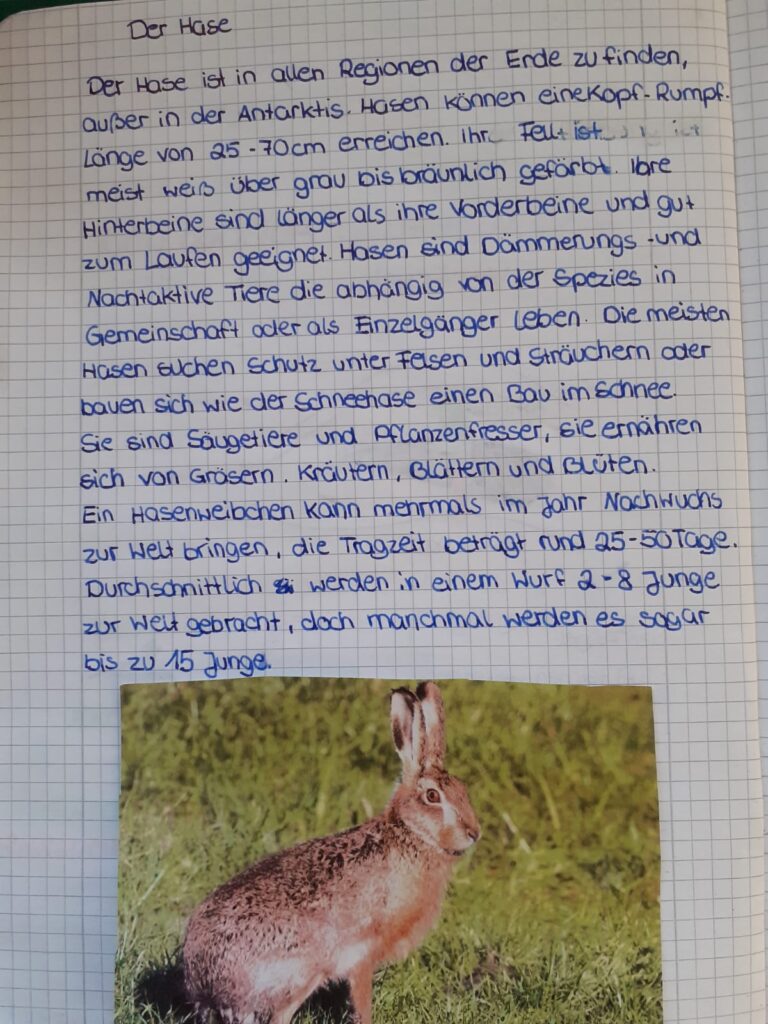 Der Hase
Der Hase ist in allen Regionen der Erde zu finden,
außer in der Antarktis. Hasen können eine Kopf-Rumpf-
Länge von 25-70cm erreichen. Ihr Fell ist
meist weiß über grau bis bräunlich gefärbt. Ihre
Hinterbeine sind länger als ihre Vorderbeine und gut
zum Laufen geeignet. Hasen sind Dämmerungs -und
Nachtaktive Tiere die abhängig von der Spezies in
Gemeinschaft oder als Einzelgänger leben. Die meisten
Hasen suchen Schutz unter Felsen und Sträuchern oder
bauen sich wie der Schneehase einen Bau im Schnee.
Sie sind Säugetiere und Pflanzenfresser, sie ernähren
sich von Gräsern, Kräutern, Blättern und Blüten.
Ein Hasenweibchen kann mehrmals im Jahr Nachwuchs
zur Welt bringen, die Tragzeit beträgt rund 25-50 Tage.
Durchschnittlich werden in einem Wurf 2-8 Junge
zur Welt gebracht, doch manchmal werden es sogar
bis zu 15 Junge.